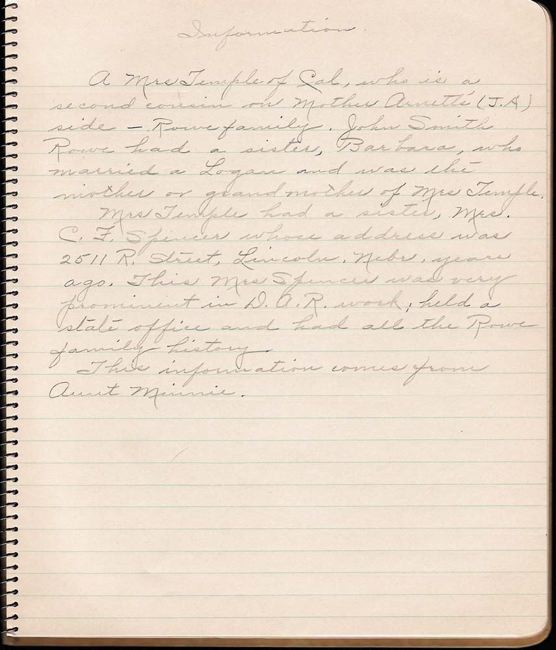 Information.
A Mrs Temple of Cal, who is a
second cousin on Mother Arnett's (J.A)
side - Rowe family. John Smith
Rowe had a sister, Barbara, who
married a Logan and was the
mother or grandmother of Mrs Temple.
Mrs Temple had a sister, Mrs.
C. F. Spencer whose address was
2511 R. Street, Lincoln, Nebr. years
ago. This Mrs Spencer was very
prominent in D.A.R. work; held a
state office and had all the Rowe
family history.
This information comes from
Aunt Minnie.